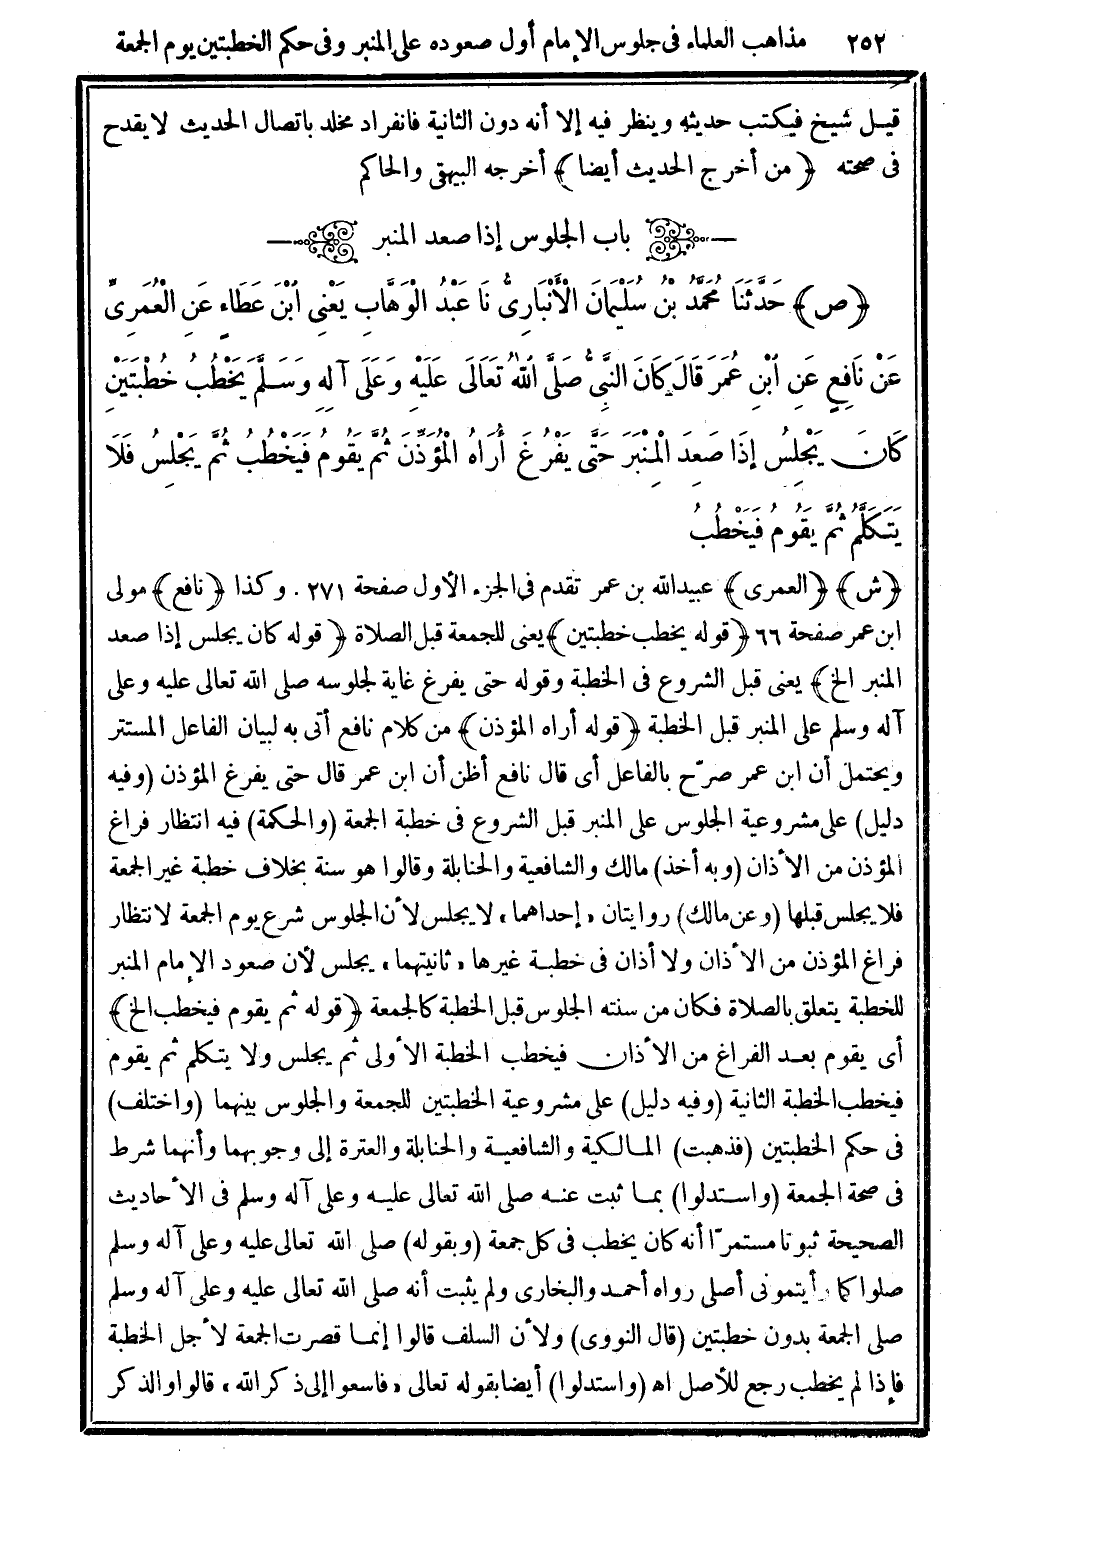 ٢٥٢ مذاهب العلماء فى جلوس الإمام أول صعوده على المنبر وفى حكم الخطبتين يوم الجمعة
قيل شيخ فيكتب حديثه وينظر فيه إلا أنه دون الثانية فانفراد مخلد باتصال الحديث لا يقدح
فى صحته ﴿من أخرج الحديث أيضا﴾ أخرجه البيهقى والحاكم
باب الجلوس إذا صعد المنبر
﴿ص﴾ حَدَّثَنَا مُحَمَّدُ بْنُ سُلَيْمَانَ الْأَنْبَارِىُّ نَا عَبْدُ الْوَهَّابِ يَعْنِى ابْنَ عَطَاءٍ عَنِ الْعُمَرِىِّ
عَنْ نَافِعٍ عَنِ ابْنِ عُمَرَ قَالَ كَانَ النَّبِىُّ صَلَّى اللهُ تَعَالَى عَلَيْهِ وَعَلَى آلِهِ وَسَلَّمَ يَخْطُبُ خُطْبَتَيْنِ
كَانَ يَجْلِسُ إِذَا صَعِدَ الْمِنْبَرَ حَتَّى يَفْرُغَ أُرَاهُ الْمُؤَذِّنَ ثُمَّ يَقُومُ فَيَخْطُبُ ثُمَّ يَجْلِسُ فَلَا
يَتَكَلَّمُ ثُمَّ يَقُومُ فَيَخْطُبُ
﴿ش﴾ ﴿العمرى﴾ عبيدالله بن عمر تقدم فى الجزء الأول صفحة ٢٧١. وكذا ﴿نافع﴾ مولى
ابن عمر صفحة ٦٦ ﴿قوله يخطب خطبتين﴾ يعنى للجمعة قبل الصلاة ﴿قوله كان يجلس إذا صعد
المنبر الخ﴾ يعنى قبل الشروع فى الخطبة وقوله حتى يفرغ غاية لجلوسه صلى الله تعالى عليه وعلى
آله وسلم على المنبر قبل الخطبة ﴿قوله أراه المؤذن﴾ من كلام نافع أتى به لبيان الفاعل المستتر
ويحتمل أن ابن عمر صرّح بالفاعل أى قال نافع أظن أن ابن عمر قال حتى يفرغ المؤذن (وفيه
دليل) على مشروعية الجلوس على المنبر قبل الشروع فى خطبة الجمعة (والحكمة) فيه انتظار فراغ
المؤذن من الأذان (وبه أخذ) مالك والشافعية والحنابلة وقالوا هو سنة بخلاف خطبة غير الجمعة
فلا يجلس قبلها (وعن مالك) روايتان «إحداهما» لا يجلس لأن الجلوس شرع يوم الجمعة لانتظار
فراغ المؤذن من الأذان ولا أذان فى خطبة غيرها «ثانيتهما» يجلس لأن صعود الإمام المنبر
للخطبة يتعلق بالصلاة فكان من سنته الجلوس قبل الخطبة كالجمعة ﴿قوله ثم يقوم فيخطب الخ﴾
أى يقوم بعد الفراغ من الأذان فيخطب الخطبة الأولى ثم يجلس ولا يتكلم ثم يقوم
فيخطب الخطبة الثانية (وفيه دليل) على مشروعية الخطبتين للجمعة والجلوس بينهما (واختلف)
فى حكم الخطبتين (فذهبت) المالكية والشافعية والحنابلة والعترة إلى وجوبهما وأنهما شرط
فى صحة الجمعة (واستدلوا) بما ثبت عنه صلى الله تعالى عليه وعلى آله وسلم فى الأحاديث
الصحيحة ثبوتا مستمرّا أنه كان يخطب فى كل جمعة (وبقوله) صلى الله تعالى عليه وعلى آله وسلم
صلوا كما رأيتمونى أصلى رواه أحمد والبخارى ولم يثبت أنه صلى الله تعالى عليه وعلى آله وسلم
صلى الجمعة بدون خطبتين (قال النووى) ولأن السلف قالوا إنما قصرت الجمعة لأجل الخطبة
فإذا لم يخطب رجع للأصل اه (واستدلوا) أيضا بقوله تعالى «فاسعوا إلى ذكر الله» قالوا والذكر